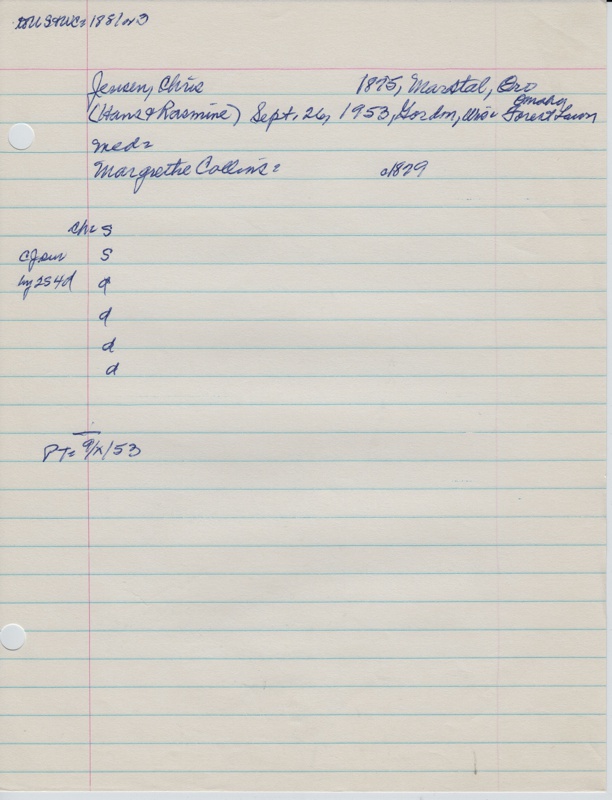 to US & WC= 1881 or 3
Jensen, Chris 1875, Marstal, Oro
(Hans & Rasmine) Sept. 26, 1953, Gordon, Wis= Omaha, Forest Lawn
med=
Margrethe Collins= c1879
Ch= s
s
by 2s4d d
d
d
d
PT= 9/x/53